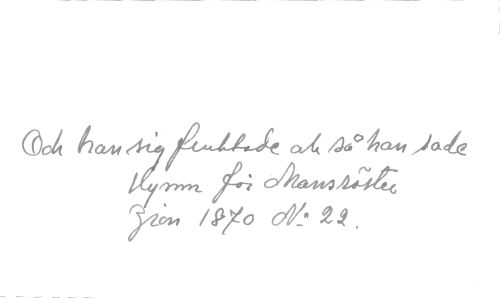 Och han sig fruktade ak så han sade
Hymn för Mansröster
Zion 1870 No 22.